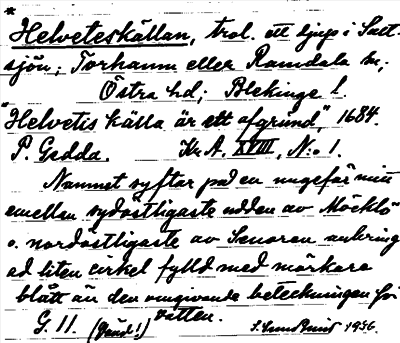 *
Helveteskällan, trol. ett djup i Salt-
sjön; Torhamn eller Ramdala sn,
Östra hd; Blekinge l.
"Helvetis källa är ett afgrund", 1684.
P. Gedda. Kr. A. XVIII, N:o 1.
Namnet syftar på en ungefär mitt
emellan sydöstligaste udden av Möcklö
o. nordöstligaste av Senoren anbring-
ad liten cirkel fylld med mörkare
blått än den omgivande beteckningen för
G. 11. (Gäud!) vatten.
1936.